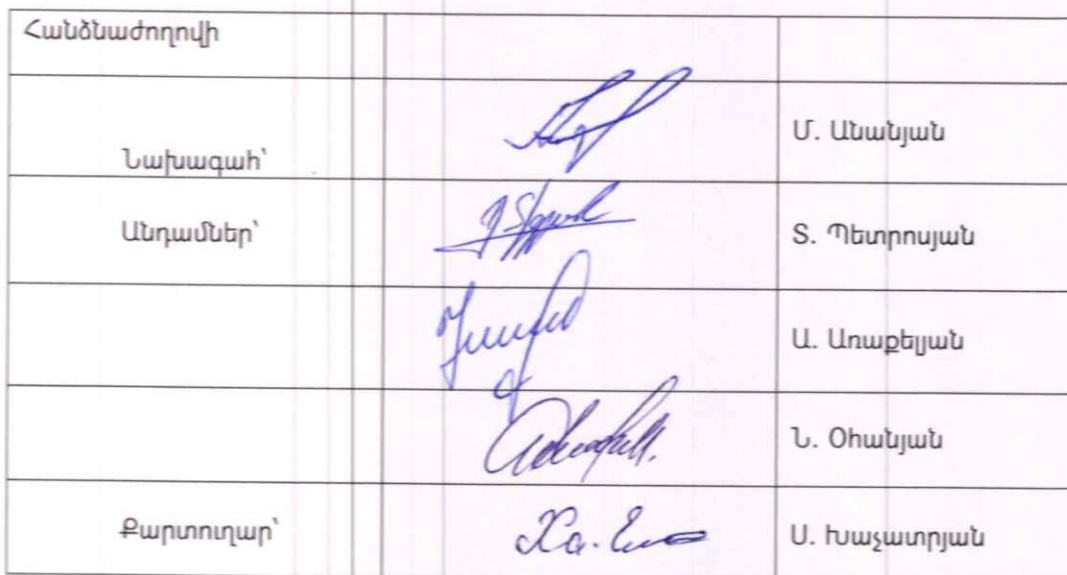 Հանձնաժողովի
Նախագահ՝
Մ. Անանյան
Անդամներ՝
Տ. Պետրոսյան
Ա. Առաքելյան
Ն. Օհանյան
Քարտուղար՝
Ս. Խաչատրյան